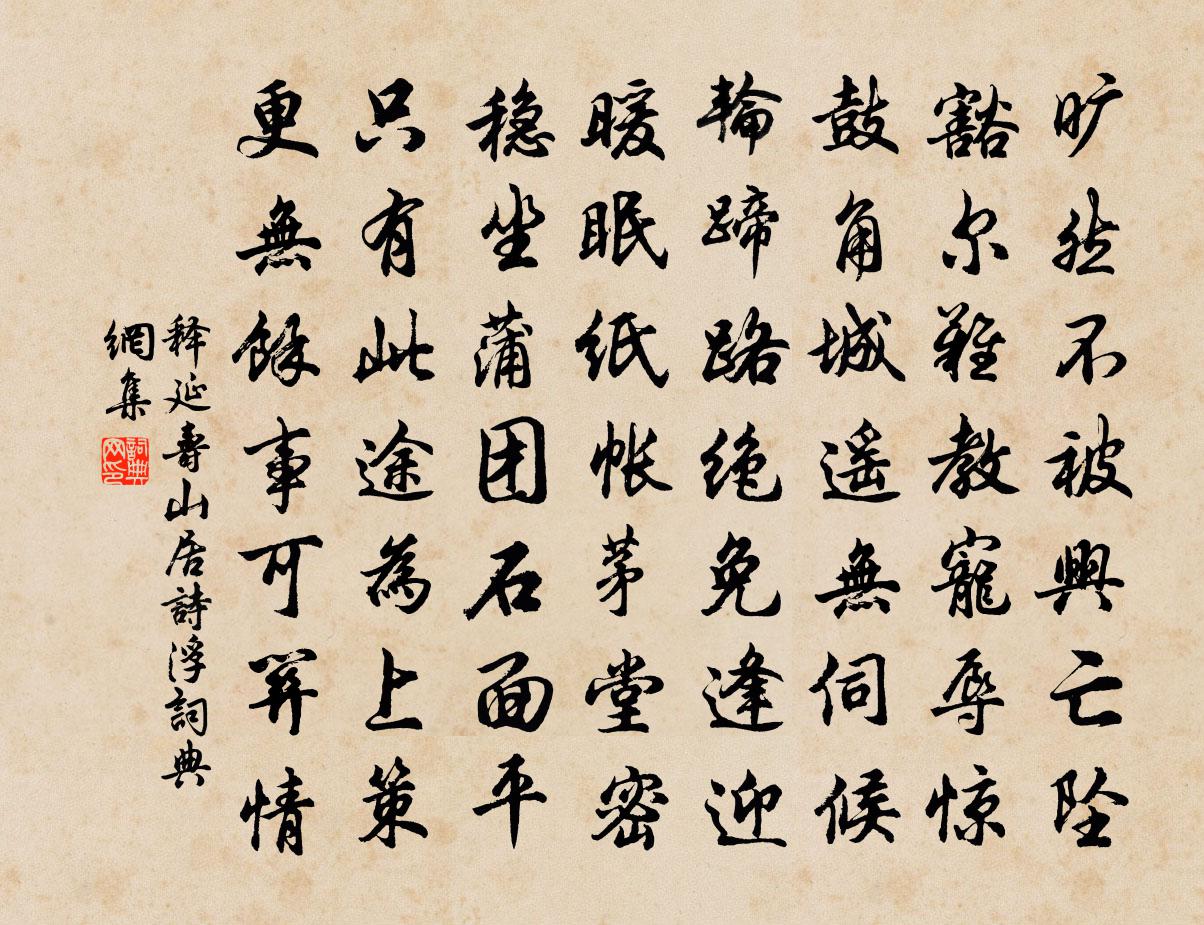 旷然不被興亡坠
豁尔難教寵辱惊
鼓角城遥無伺候
輪蹄路绝免逢迎
暖眠纸帐茅堂密
稳坐蒲团石面平
只有此途為上策
更無餘事可关情
释延寿山居詩浮詞典
網集
詞典网印